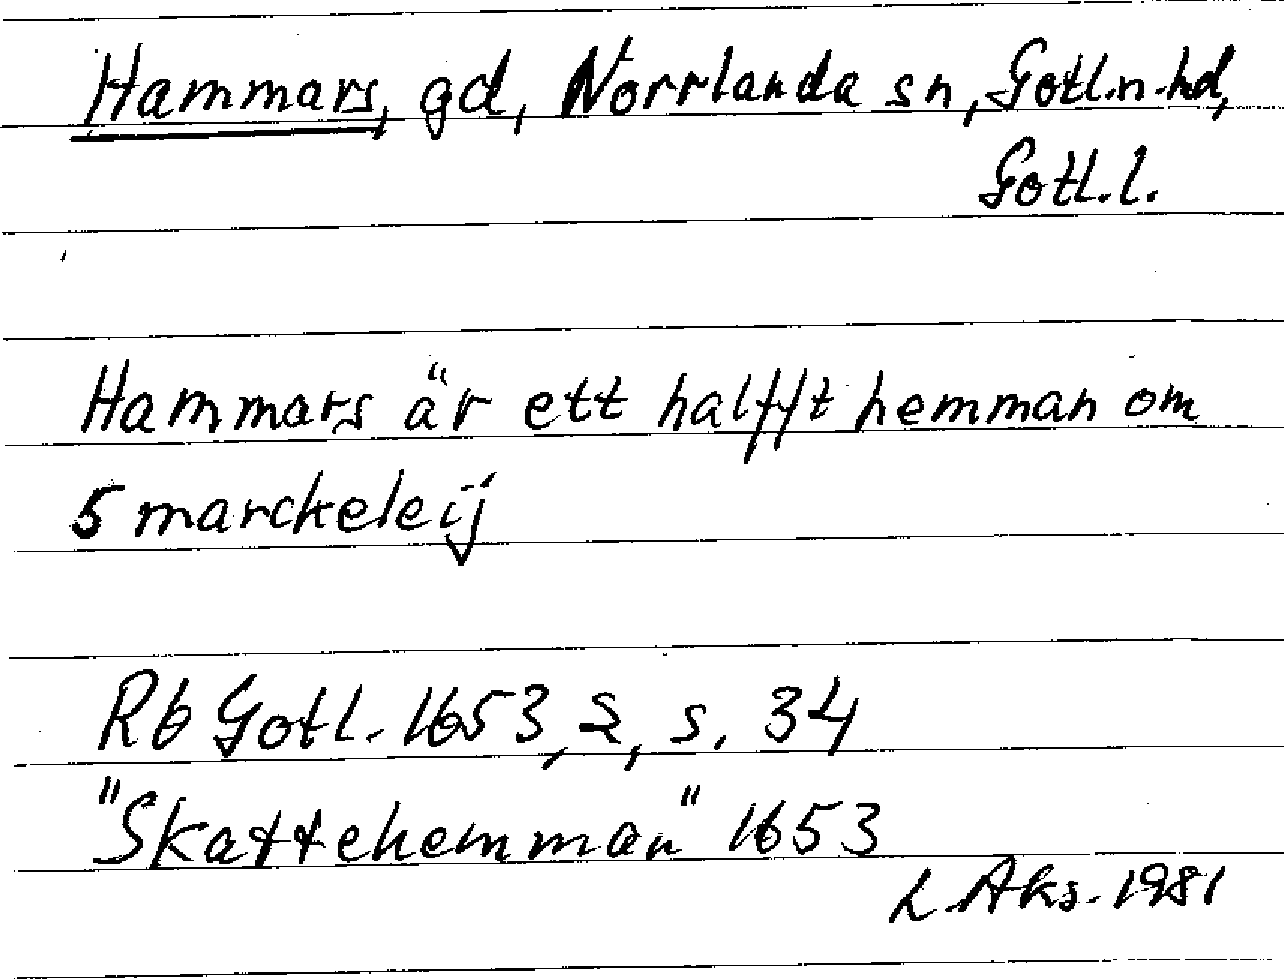 Hammars, gd, Norrlanda sn, Gotl.n.hd,
Gotl.l.
Hammars är ett halfft hemman om
5 marckeleij
Rb Gotl. 1653, 2, s. 34
"Skattehemman" 1653
L. Aks. 1981